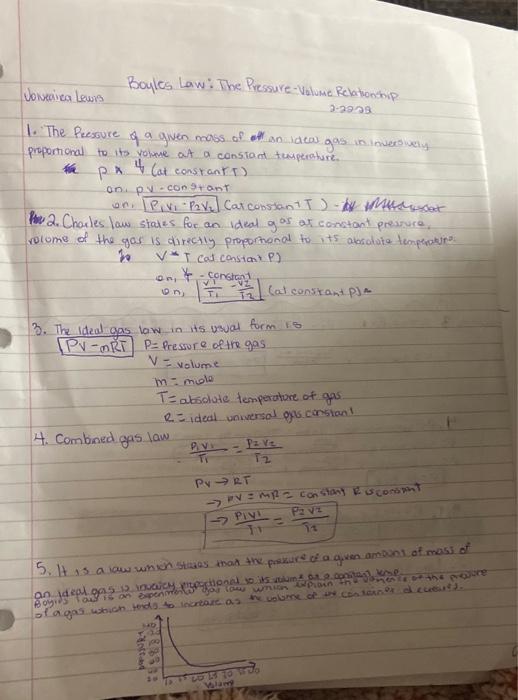 Boyles Law: The Pressure-Volume Relationship
Lewis
1. The Pressure of a given mass of an ideal gas in inversely
proportional to its volume at a constant temperature.
(at constant T)
on, PV - constant
on, P1V1 - P2V2 (at constant T) -
2. Charles law states for an ideal gas at constant pressure,
volume of the gas is directly proportional to its absolute temperature.
V T (at constant P)
on, - constant
on, V1/T1 - V2/T2 (at constant P)
3. The ideal gas law in its usual form is
PV-nRT P= Pressure of the gas
V = volume
m = mole
T = absolute temperature of gas
R = ideal universal gas constant
4. Combined gas law
P1V1/T1 = P2V2/T2
PV → RT
→ PV = MR = constant R is constant
→ P1V1/T1 = P2V2/T2
5. It is a law which states that the pressure of a given amount of mass of
an ideal gas is inversly proportional to its volume at a constant temp.
Boyles law is an experimental gas law which explain the of the pressure
of a gas which tends to increase as the volume of the container decreases.
Volume